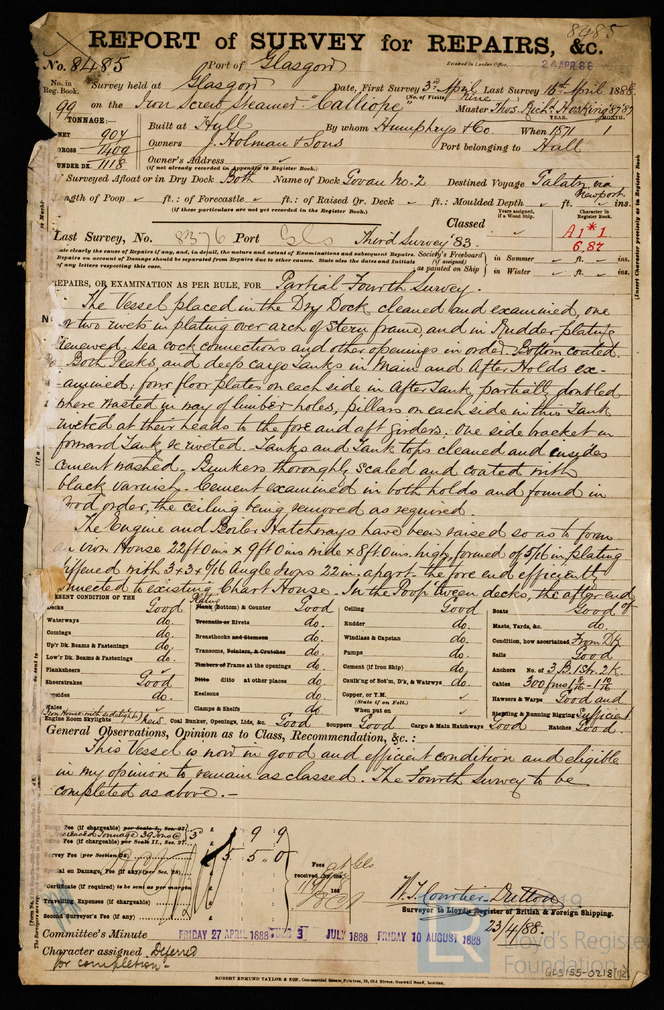 8485
REPORT of SURVEY for REPAIRS, &c.
No. 8485 Port of Glasgow Received in London Office, 24 APR. 88
No. in Reg. Book. Survey held at Glasgow Date, First Survey 3rd April Last Survey 16th April 1888
(No. of Visits Nine
99 on the Iron Screw Steamer "Calliope" Master Thos. Richd. Hosking '87 '87
TONNAGE: YEAR. MONTH.
NET 904 Built at Hull By whom Humphrys & Co. When 1871 1
GROSS 1409 Owners J. Holman & Sons Port belonging to Hull
UNDER DK. 1118 Owner's Address
(if not already recorded in Appendix to Register Book.)
If Surveyed Afloat or in Dry Dock Both Name of Dock Govan No. 2 Destined Voyage Galatz via Newport
Length of Poop ft.: of Forecastle ft.: of Raised Qr. Deck ft.: Moulded Depth ft. ins.
(if these particulars are not yet recorded in the Register Book.)
Classed
Years assigned, if a Wood Ship. Character in Register Book.
A1*1
6,87
Last Survey, No. 8376 Port Gls Third Survey '83.
Society's Freeboard (if assigned) as painted on Ship in Summer ft. ins.
in Winter ft. ins.
REPAIRS, OR EXAMINATION AS PER RULE, FOR Partial Fourth Survey.
The Vessel placed in the Dry Dock cleaned and examined, one
or two rivets in plating over arch of Stern frame, and in Rudder plating
renewed, sea cock connections and other openings in order. Bottom coated.
Both Peaks, and deep cargo Tanks in Main and After Holds ex-
amined; four floor plates on each side in After Tank partially doubled
where wasted in way of limber holes, pillars on each side in this Tank
riveted at their heads to the fore and aft girders; one side bracket in
forward Tank re riveted. Tanks and Tank tops cleaned and insides
cement washed. Bunkers thoroughly scaled and coated with
black varnish. Cement examined in both holds and found in
good order, the ceiling being removed as required.
The Engine and Boiler Hatchways have been raised so as to form
an iron House 22ft 0ins x 9ft 0ins wide x 8ft 0ins. high, formed of 5/16 in. plating
stiffened with 3 x 3 x 6/16 Angle Irons 22 in. apart. the fore end efficiently
connected to existing Chart House. In the Poop 'tween decks, the after end
PRESENT CONDITION OF THE
Decks Good Plank (Bottom) & Counter Good Ceiling Good Boats Good
Waterways do. Treenails or Rivets do. Rudder do. Masts, Yards, &c. do.
Comings do. Breasthooks and Stemson do. Windlass & Capstan do. Condition, how ascertained From Dk
Up'r Dk. Beams & Fastenings do. Transoms, Pointers, & Crutches do. Pumps do. Sails Good
Low'r Dk. Beams & Fastenings do. Timbers or Frame at the openings do. Cement (if Iron Ship) do. Anchors No. of 3 B. 1 St. 2 K.
Planksheers Ditto ditto at other places do. Caulk'g of Bot'm, D'k, & Watrwys do. Cables 300 fms
Sheerstrakes Good Keelsons do. Copper, or Y.M. Hawsers & Warps Good and
Topsides do. Clamps & Shelfs do. (State if on Felt.) Standing & Running Rigging Sufficient
When put on
Engine Room Skylights New Coal Bunker, Openings, Lids, &c. Good Scuppers Good Cargo & Main Hatchways Good Hatches Good.
General Observations, Opinion as to Class, Recommendation, &c.:
This Vessel is now in good and efficient condition and eligible
in my opinion to remain as classed. The Fourth Survey to be
completed as above.
Entry Fee (if chargeable) per Scale I., Sec. 27.
Increased Tonnage 39 Tons @ £ 9 9
Survey Fee (per Section 28) 5 5 0
Special on Damage Fee (if any) (per Sec. 28)
Certificate (if required) to be sent as per margin
Travelling Expenses (if chargeable)
Second Surveyor's Fee (if any)
Fees received by me,
Surveyor to Lloyd's Register of British & Foreign Shipping.
23/4/88.
Committee's Minute FRIDAY 27 APRIL 1888 TUES 3 JULY 1888 FRIDAY 10 AUGUST 1888
Character assigned Deferred
for completion
Lloyd's Register
Foundation
GLS155-0218[1]
ROBERT EDMUND TAYLOR & SON, Commercial Steam Printers, 19, Old Street, Goswell Road, London.